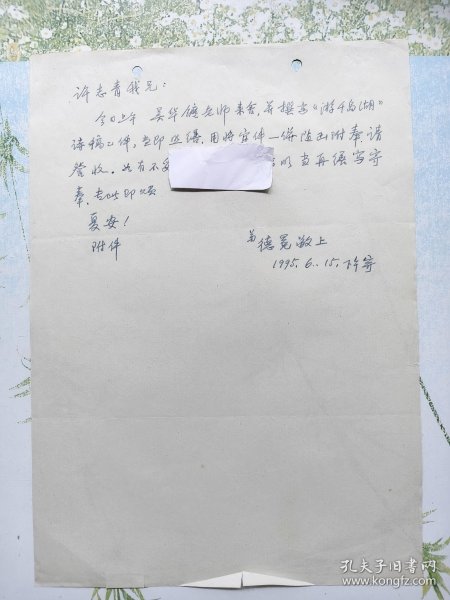 许志青我兄：
今日上午 吴华德老师来舍，并携来《游千岛湖》
诗稿乙件，当即 用将宣件一併随函附奉请
詧收。如有不 当再强写寄
奉。专此即颂
夏安！
附件
弟德 敬上
1995.6.15.下午寄
孔夫子旧书网
www.kongfz.com